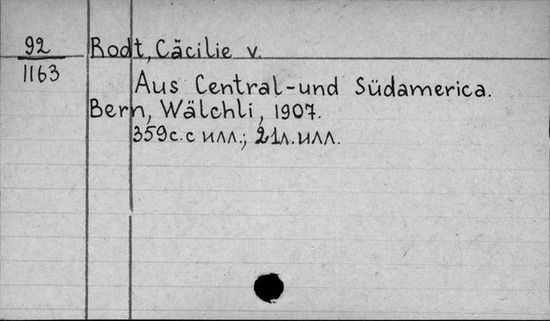 92
1163
Rodt, Cäcilie v.
Aus Central-und Südamerica.
Bern, Wälchli, 1907.
359с. с илл.; 21л. илл.